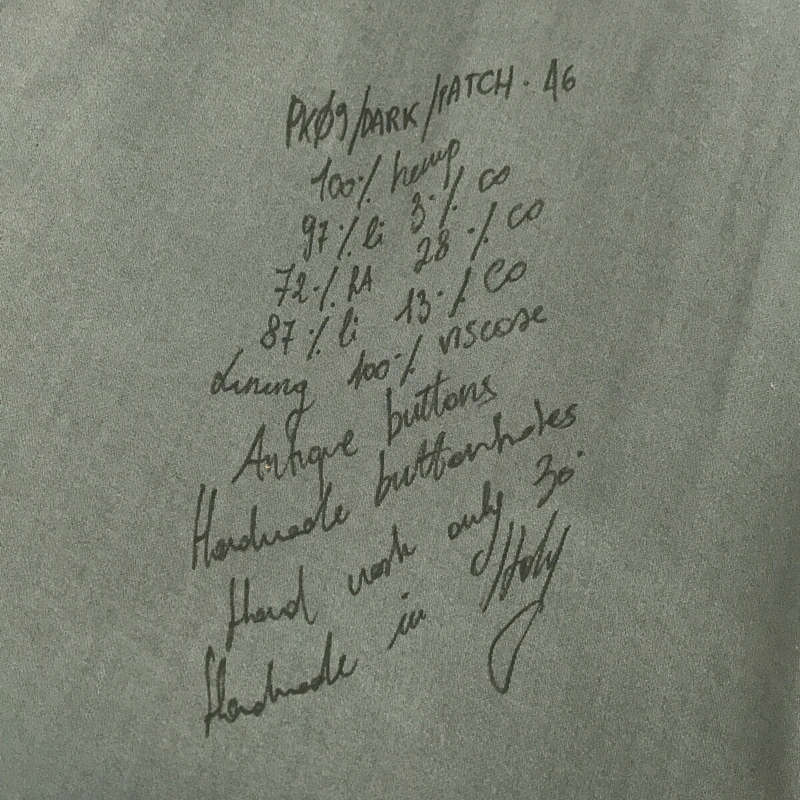 PKØ9/DARK/PATCH. 46
100% hemp
97% li 3% co
72% RA 28% CO
87% li 13% CO
Lining 100% viscose
Antique buttons
Handmade buttonholes
Hand wash only 30°
Handmade in Italy